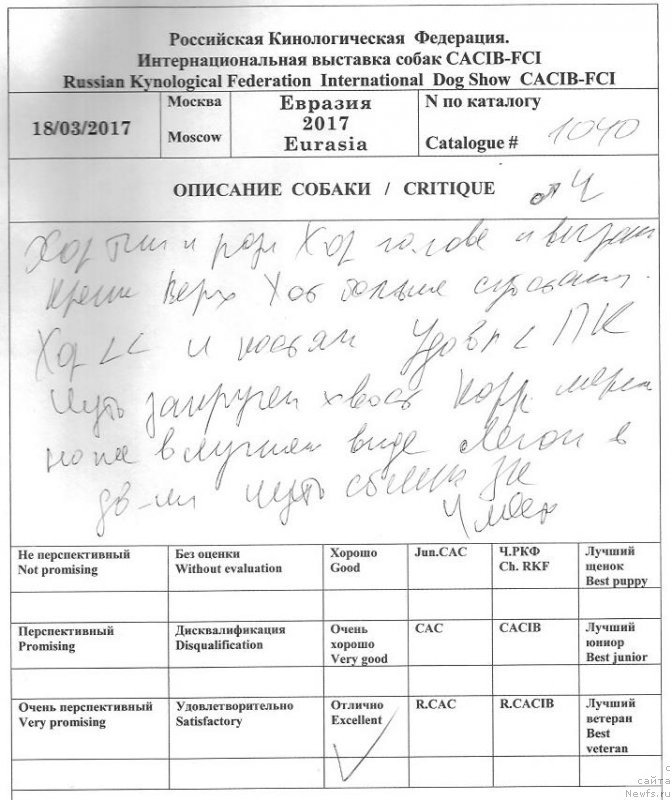 Российская Кинологическая Федерация.
Интернациональная выставка собак CACIB-FCI
Russian Kynological Federation International Dog Show CACIB-FCI
18/03/2017
Москва
Moscow
Евразия
2017
Eurasia
N по каталогу
Catalogue # 1040
ОПИСАНИЕ СОБАКИ / CRITIQUE
Хор тип и Хор голова и
Верх Хот больше
Хор и костяк Удовл ПК
Чуть закручен хвост Корр
но не в лучшем виде
дв-ии чуть
Не перспективный
Not promising
Без оценки
Without evaluation
Хорошо
Good
Jun.CAC
Ч.РКФ
Ch. RKF
Лучший
щенок
Best puppy
Перспективный
Promising
Дисквалификация
Disqualification
Очень
хорошо
Very good
CAC
CACIB
Лучший
юниор
Best junior
Очень перспективный
Very promising
Удовлетворительно
Satisfactory
Отлично
Excellent
R.CAC
R.CACIB
Лучший
ветеран
Best
veteran
с
сайта
Newfs.ru